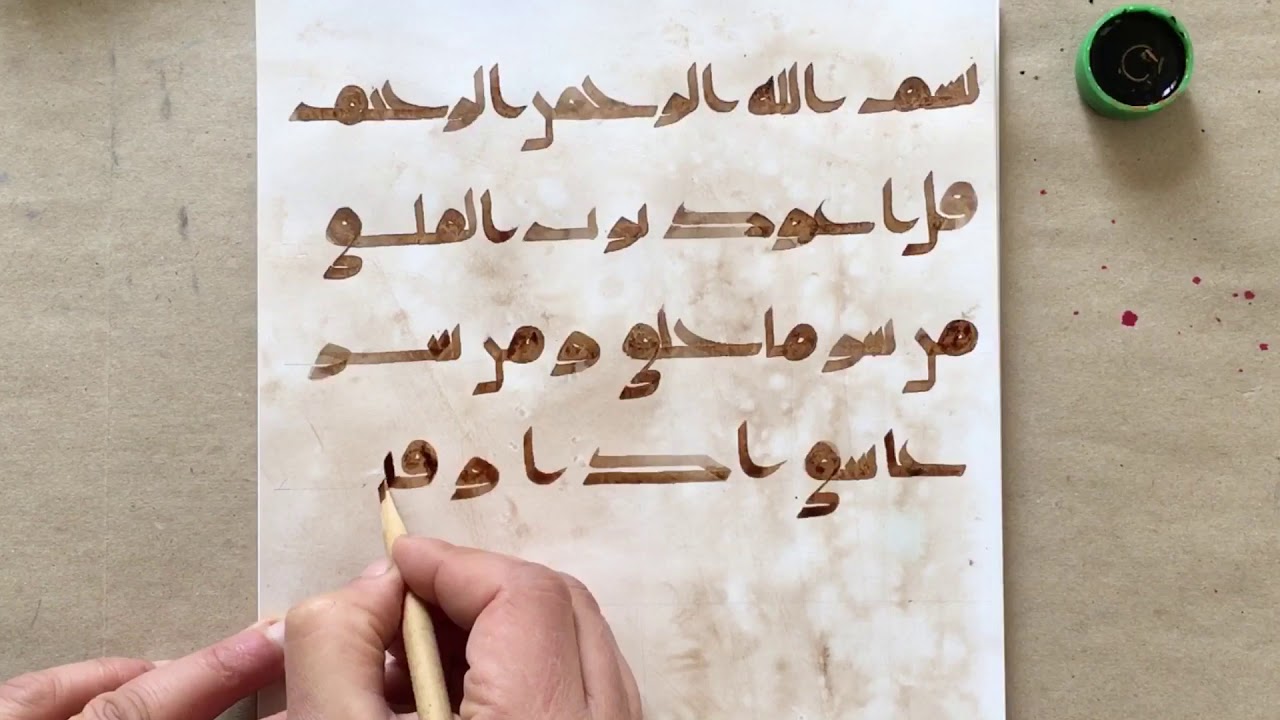 بسم الله الرحمن الرحيم
قل اعوذ برب الفلق
من شر ما خلق و من شر
غاسق اذا وقب